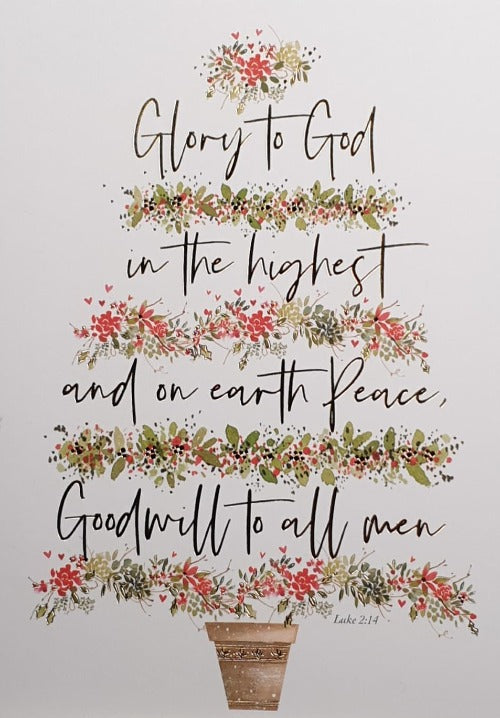 Glory to God
in the highest
and on earth Peace,
Goodwill to all men
Luke 2:14